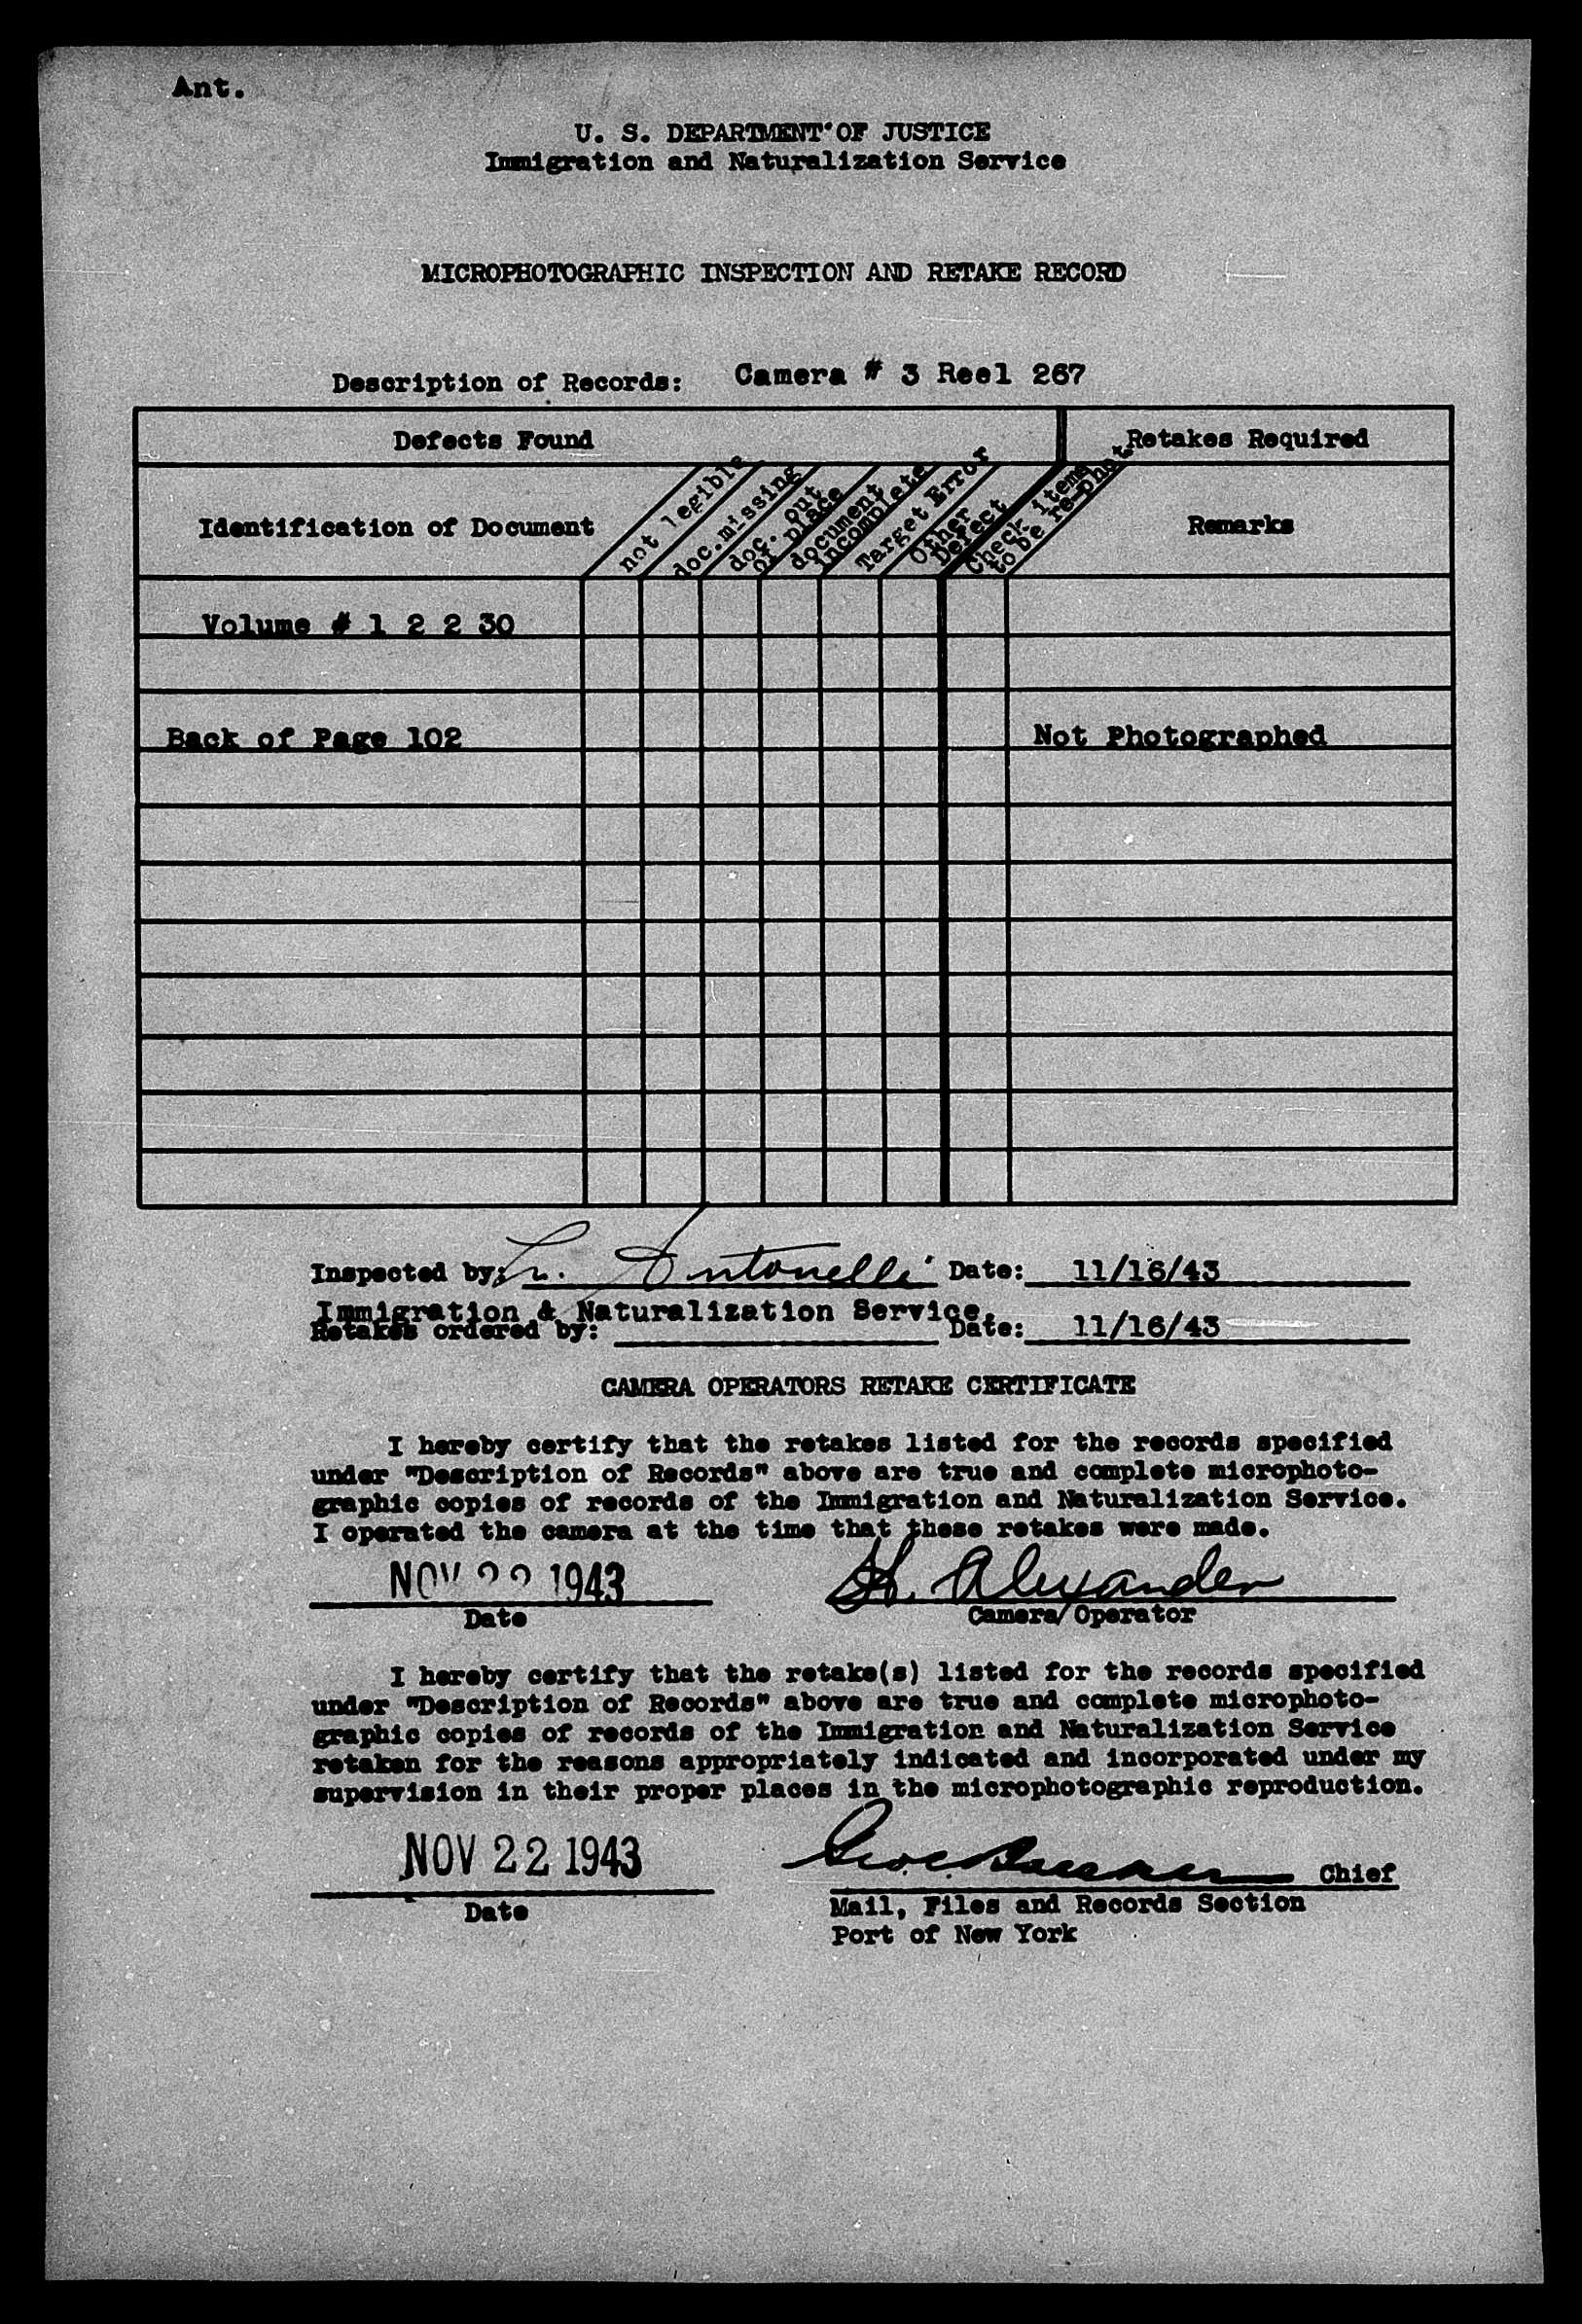 Ant.
U. S. DEPARTMENT OF JUSTICE
Immigration and Naturalization Service
MICROPHOTOGRAPHIC INSPECTION AND RETAKE RECORD
Description of Records: Camera # 3 Reel 267
Defects Found
Retakes Required
Identification of Document
not legible
doc. missing
doc. out
of place
document
incomplete
Target Error
Other
Defect
Check items
to be re-phot.
Remarks
Volume # 1 2 2 30
Back of Page 102 Not Photographed
Inspected by: L. Antonelli Date: 11/16/43
Immigration & Naturalization Service.
Retakes ordered by: Date: 11/16/43
CAMERA OPERATORS RETAKE CERTIFICATE
I hereby certify that the retakes listed for the records specified
under "Description of Records" above are true and complete microphoto-
graphic copies of records of the Immigration and Naturalization Service.
I operated the camera at the time that these retakes were made.
NOV 22 1943 H. Alexander
Date Camera Operator
I hereby certify that the retake(s) listed for the records specified
under "Description of Records" above are true and complete microphoto-
graphic copies of records of the Immigration and Naturalization Service
retaken for the reasons appropriately indicated and incorporated under my
supervision in their proper places in the microphotographic reproduction.
NOV 22 1943 Chief
Date
Mail, Files and Records Section
Port of New York